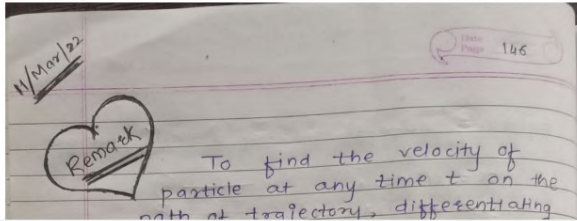 11/Mar/22
Date
Page 146
Remark
To find the velocity of
particle at any time t on the
path of trajectory, differentiating